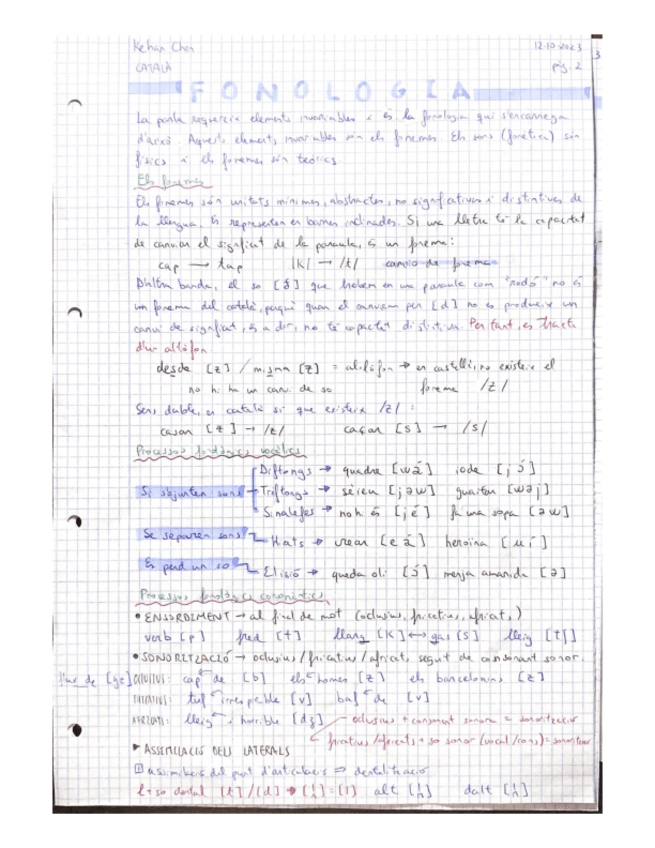 Kehan Chen 12.10.2023
CATALÀ pàg. 2
FONOLOGIA
La parla requereix elements invariables i és la fonologia qui s'encarrega
d'això. Aquests elements invariables són els fonemes. Els sons (fonètica) són
físics i els fonemes són teòrics.
Els fonemes
Els fonemes són unitats mínimes, abstractes, no significatives i distintives de
la llengua. Es representen en barres inclinades. Si una lletra té la capacitat
de canviar el significat de la paraula, és un fonema:
cap → tap |k| → /t/ canvio de fonema
D'altra banda, el so [ð] que trobem en una paraula com "rodó" no és
un fonema del català, perquè quan el canviem per [d] no es produeix un
canvi de significat, és a dir, no té capacitat distintiva. Per tant, es tracta
d'un al·lòfon.
desde [z] / misma [z] = al·lòfon → en castellà, no existeix el
no hi ha un canvi de so fonema /z/
Sens dubte, en català sí que existeix /z/:
casar [z] → /z/ caçar [s] → /s/
Processos fonològics vocàlics
Diftongs → quadre [wá] iode [jɔ́]
Si s'ajunten sons Triftongs → sèieu [jəw] guaitar [wəj]
Sinalefes → no hi és [jé] fa una sopa [əw]
Se separen sons Hiats → crear [eá] heroïna [uí]
Es perd un so Elisió → queda oli [ɔ́] menja amanida [ə]
Processos fonològics consonàntics
• ENSORDIMENT → al final de mot (oclusius, fricatius, africats)
verb [p] fred [t] llarg [k] ↔ gas [s] lleig [tʃ]
• SONORITZACIÓ → oclusius/fricatius/africat, seguit de consonant sonor.
lluc de [gz] OCLUSIUS: cap de [b] els homes [z] els barcelonins [z]
FRICATIUS: tuf irrespirable [v] baf de [v]
AFRICATS: lleig i horrible [dʒ] oclusius + consonant sonora = sonorització
fricatius/africats + so sonor (vocal/cons) = sonoritzar
▶ ASSIMILACIÓ DELS LATERALS
1 assimilació del punt d'articulació ⇒ dentalització
l + so dental [t]/[d] → alt dalt